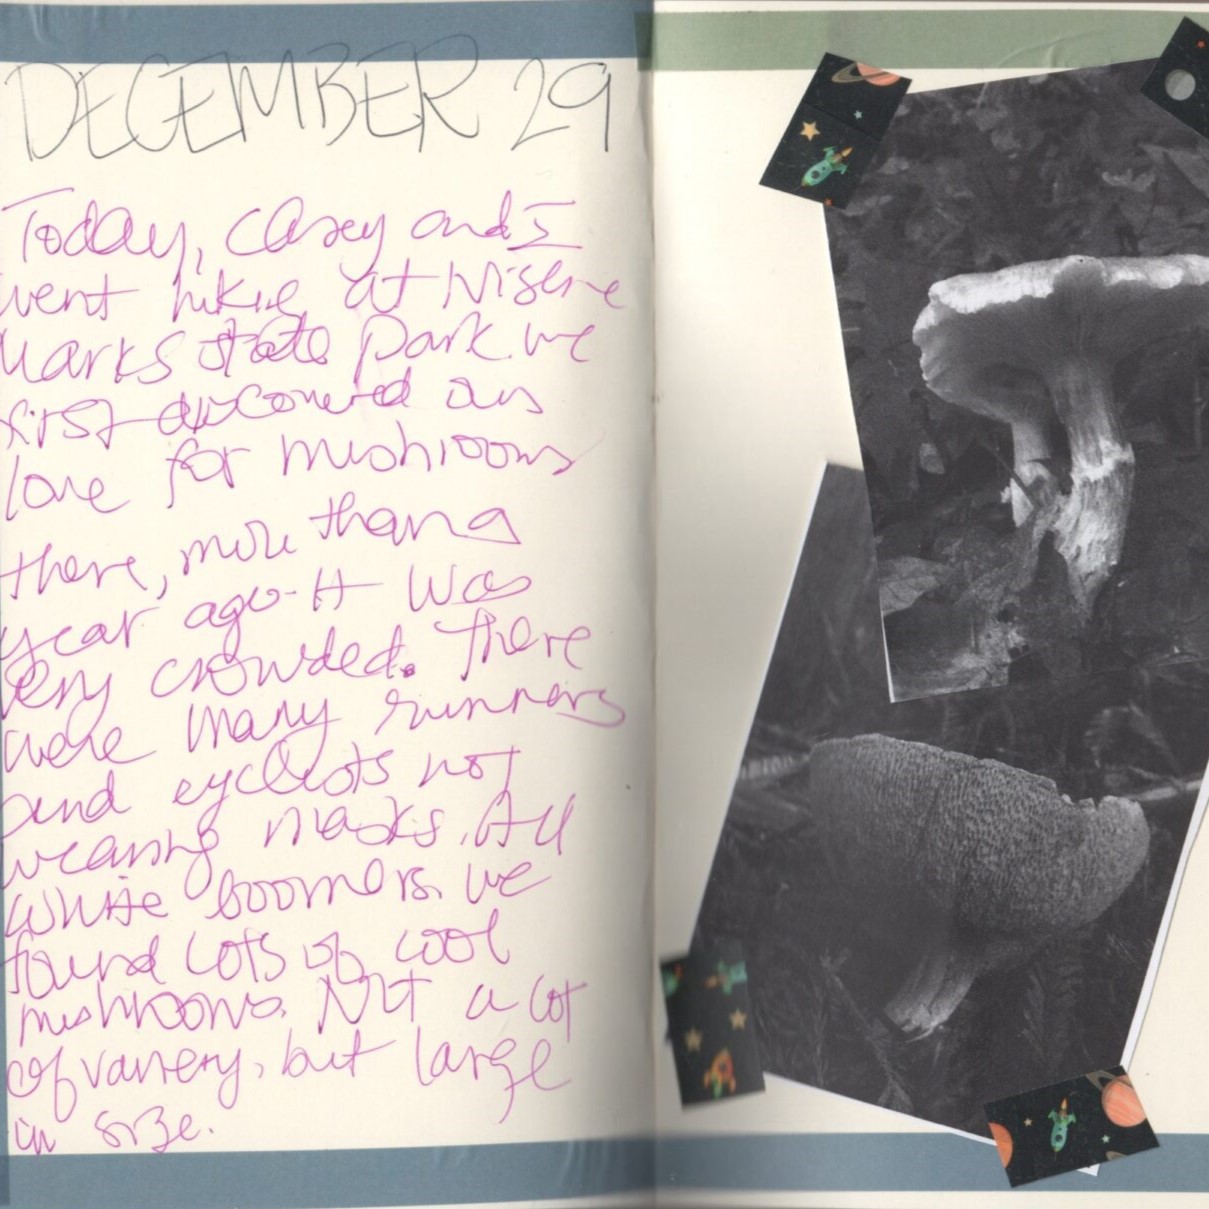 DECEMBER 29
Today, Casey and I
went hiking at Nisene
Marks state park. we
first discovered our
love for mushrooms
there, more than a
year ago. It was
very crowded. There
were many runners
and cyclists not
wearing masks. All
white boomers. We
found lots of cool
mushrooms. Not a lot
of variety, but large
in size.